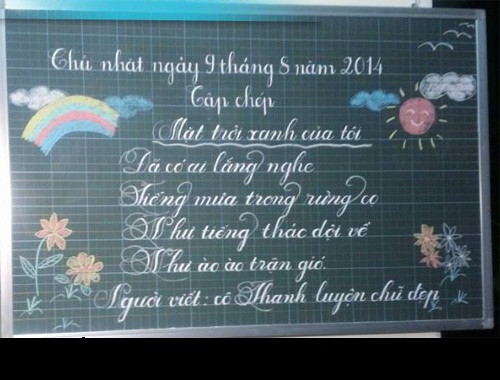 Chủ nhật ngày 9 tháng 8 năm 2014
Tập chép
Mặt trời xanh của tôi
Đã có ai lắng nghe
Tiếng mưa trong rừng cọ
Như tiếng thác dội về
Như ào ào trận gió.
Người viết: cô Thanh luyện chữ đẹp